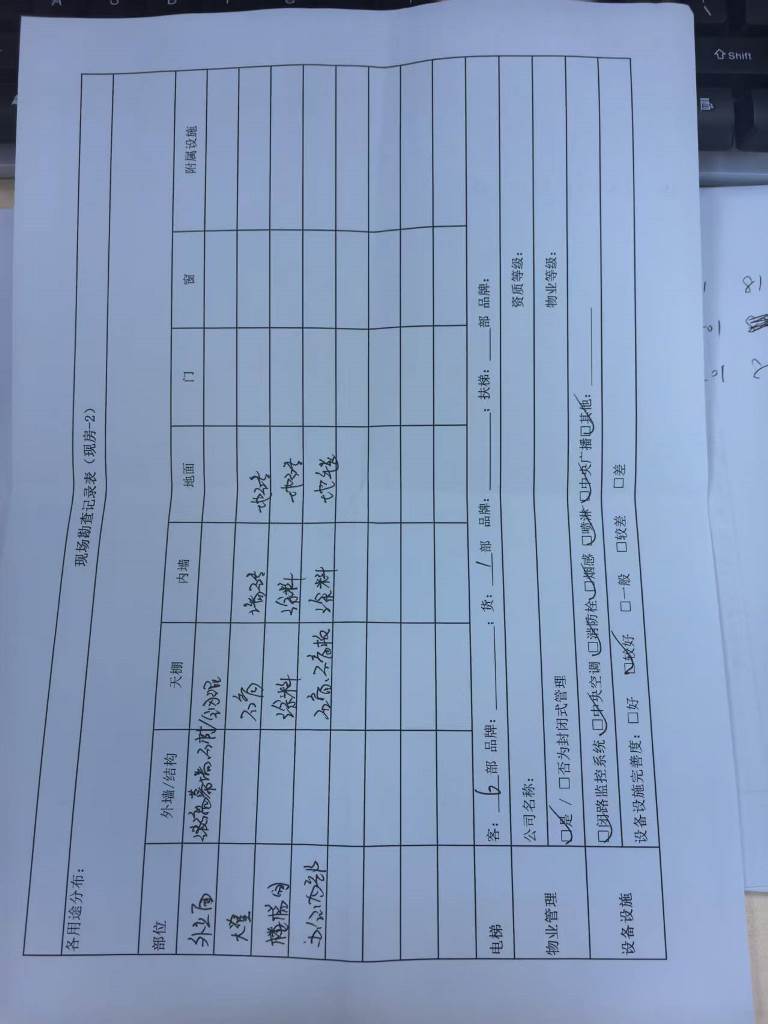 现场勘查记录表（现房-2）
各用途分布：
部位 外墙/结构 天棚 内墙 地面 门 窗 附属设施
外立面 玻璃幕墙、石材/
大堂 石膏 墙砖 地砖
楼梯间 涂料 涂料 地砖
办公内部 石膏、石膏板 涂料 地毯
电梯 客：6部 品牌：______；货：1部 品牌：______；扶梯：___部 品牌：
物业管理 公司名称： 资质等级：
☑是 / □否为封闭式管理 物业等级：
设备设施 ☑闭路监控系统 ☑中央空调 ☑消防栓 ☑烟感 ☑喷淋 ☑中央广播 ☑其他：______
设备设施完善度：□好 ☑较好 □一般 □较差 □差
Shift